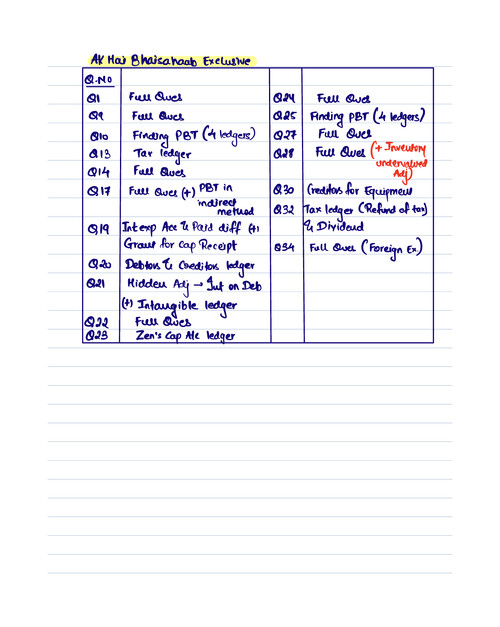 AK Hai Bhaisahaab Exclusive
Q.No
Q1 Full Ques
Q9 Full Ques
Q10 Finding PBT (4 ledgers)
Q13 Tax ledger
Q14 Full Ques
Q17 Full Ques (+) PBT in
indirect
method
Q19 Int exp Acc & Paid diff (+)
Grant for Cap Receipt
Q20 Debtors & Creditors ledger
Q21 Hidden Adj → Int on Deb
(+) Intangible ledger
Q22 Full Ques
Q23 Zen's Cap A/c ledger
Q24 Full Ques
Q25 Finding PBT (4 ledgers)
Q27 Full Ques
Q28 Full Ques (+ Inventory
undervalued
Adj)
Q30 Creditors for Equipment
Q32 Tax ledger (Refund of tax)
& Dividend
Q34 Full Ques (Foreign Ex.)